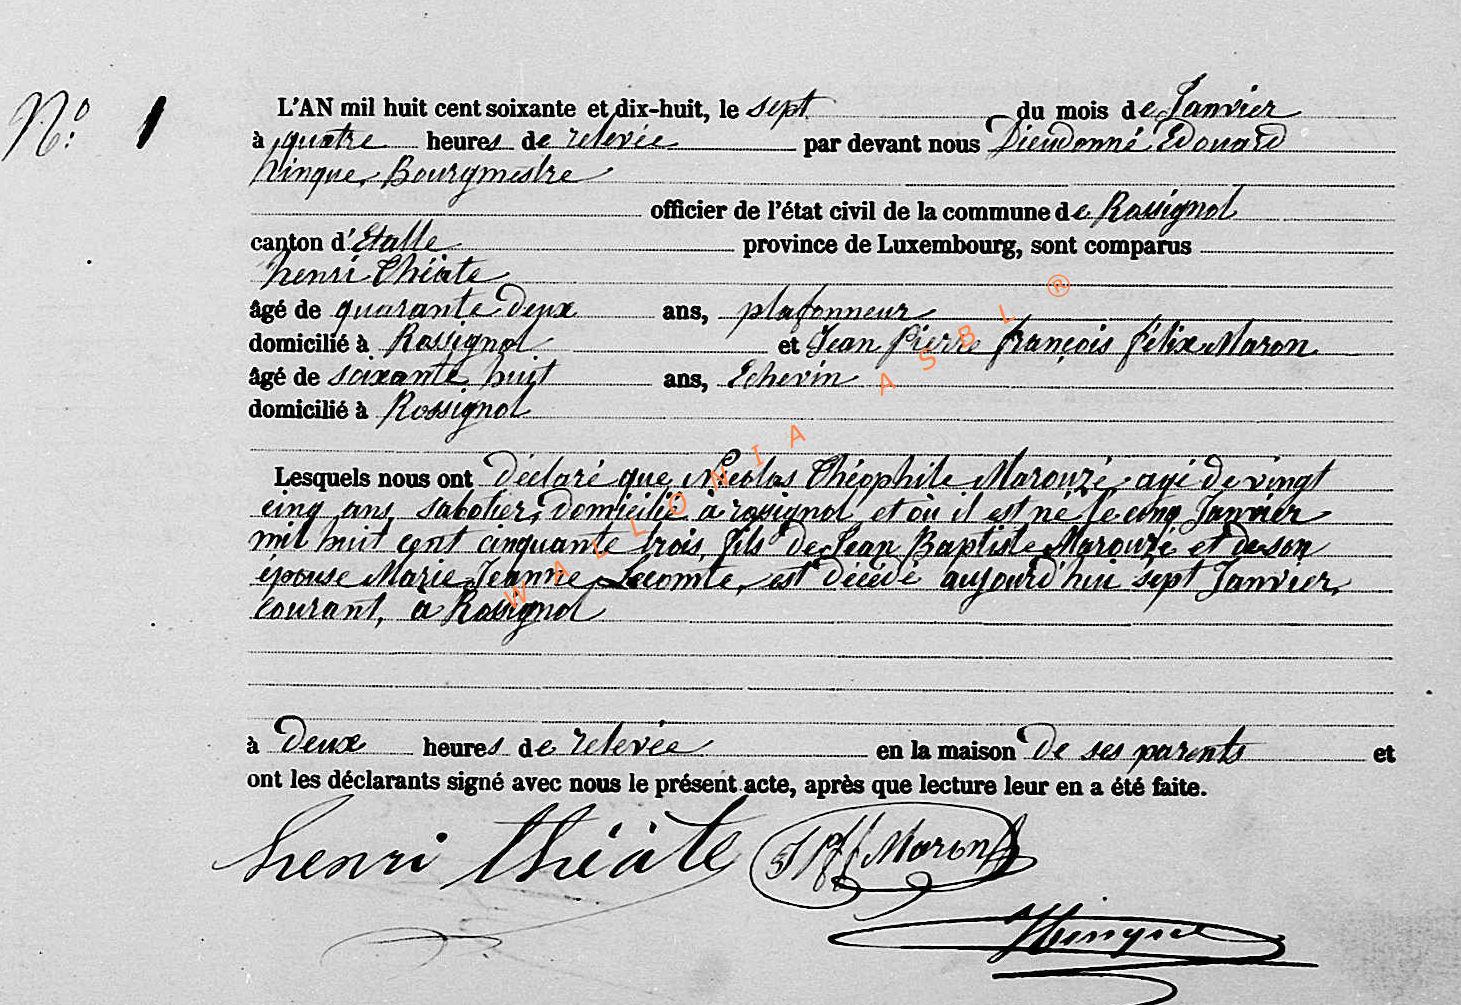 N.o 1
L'AN mil huit cent soixante et dix-huit, le sept du mois de Janvier
à quatre heures de relevée par devant nous Dieudonné Edouard
hinque, Bourgmestre
officier de l'état civil de la commune de Rossignol
canton d'Etalle province de Luxembourg, sont comparus
henri Théate
âgé de quarante deux ans, plafonneur
domicilié à Rossignol et Jean Pierre françois félix Maron
âgé de soixante huit ans, Echevin
domicilié à Rossignol
Lesquels nous ont déclaré que Nicolas Théophile Marouzé agé de vingt
cinq ans, sabotier, domicilié à rossignol et où il est né le cinq Janvier
mil huit cent cinquante trois, fils de Jean Baptiste Marouzé et de son
épouse Marie Jeanne Lecomte, est décédé aujourd'hui sept Janvier,
courant, à Rossignol
à deux heures de relevée en la maison de ses parents et
ont les déclarants signé avec nous le présent acte, après que lecture leur en a été faite.
henri théate JPff Maron
Hinque
WALLONIA ASBL ®